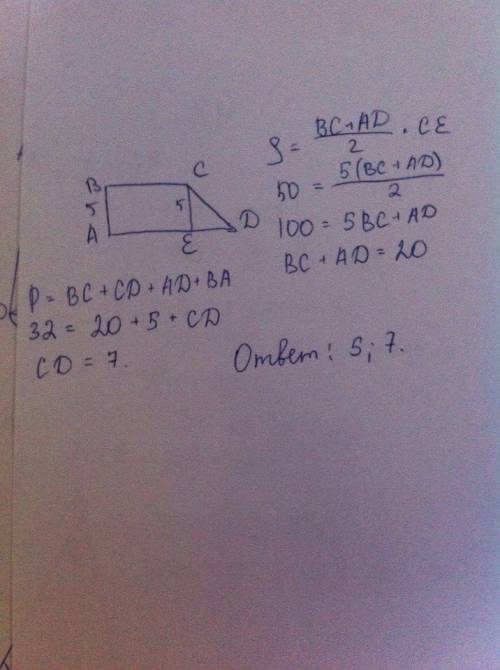 B
C
5
5
A
E
D
S = BC+AD/2 · CE
50 = 5(BC+AD)/2
100 = 5BC+AD
BC + AD = 20
P = BC+CD+AD+BA
32 = 20 + 5 + CD
CD = 7.
Ответ: 5; 7.